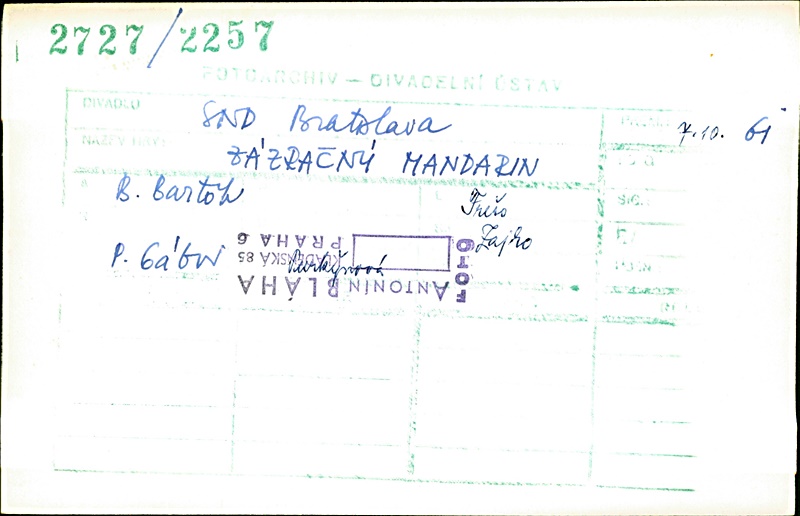 2727/2257
FOTOARCHIV — DIVADELNÍ ÚSTAV
DIVADLO SND Bratislava 7.10. 61
NÁZEV HRY ZÁZRAČNÝ MANDARIN
B. Bartók
Zajko
P. Gábor
Purkyňová
FOTO
ANTONÍN BLÁHA
KLADENSKÁ 85
PRAHA 6